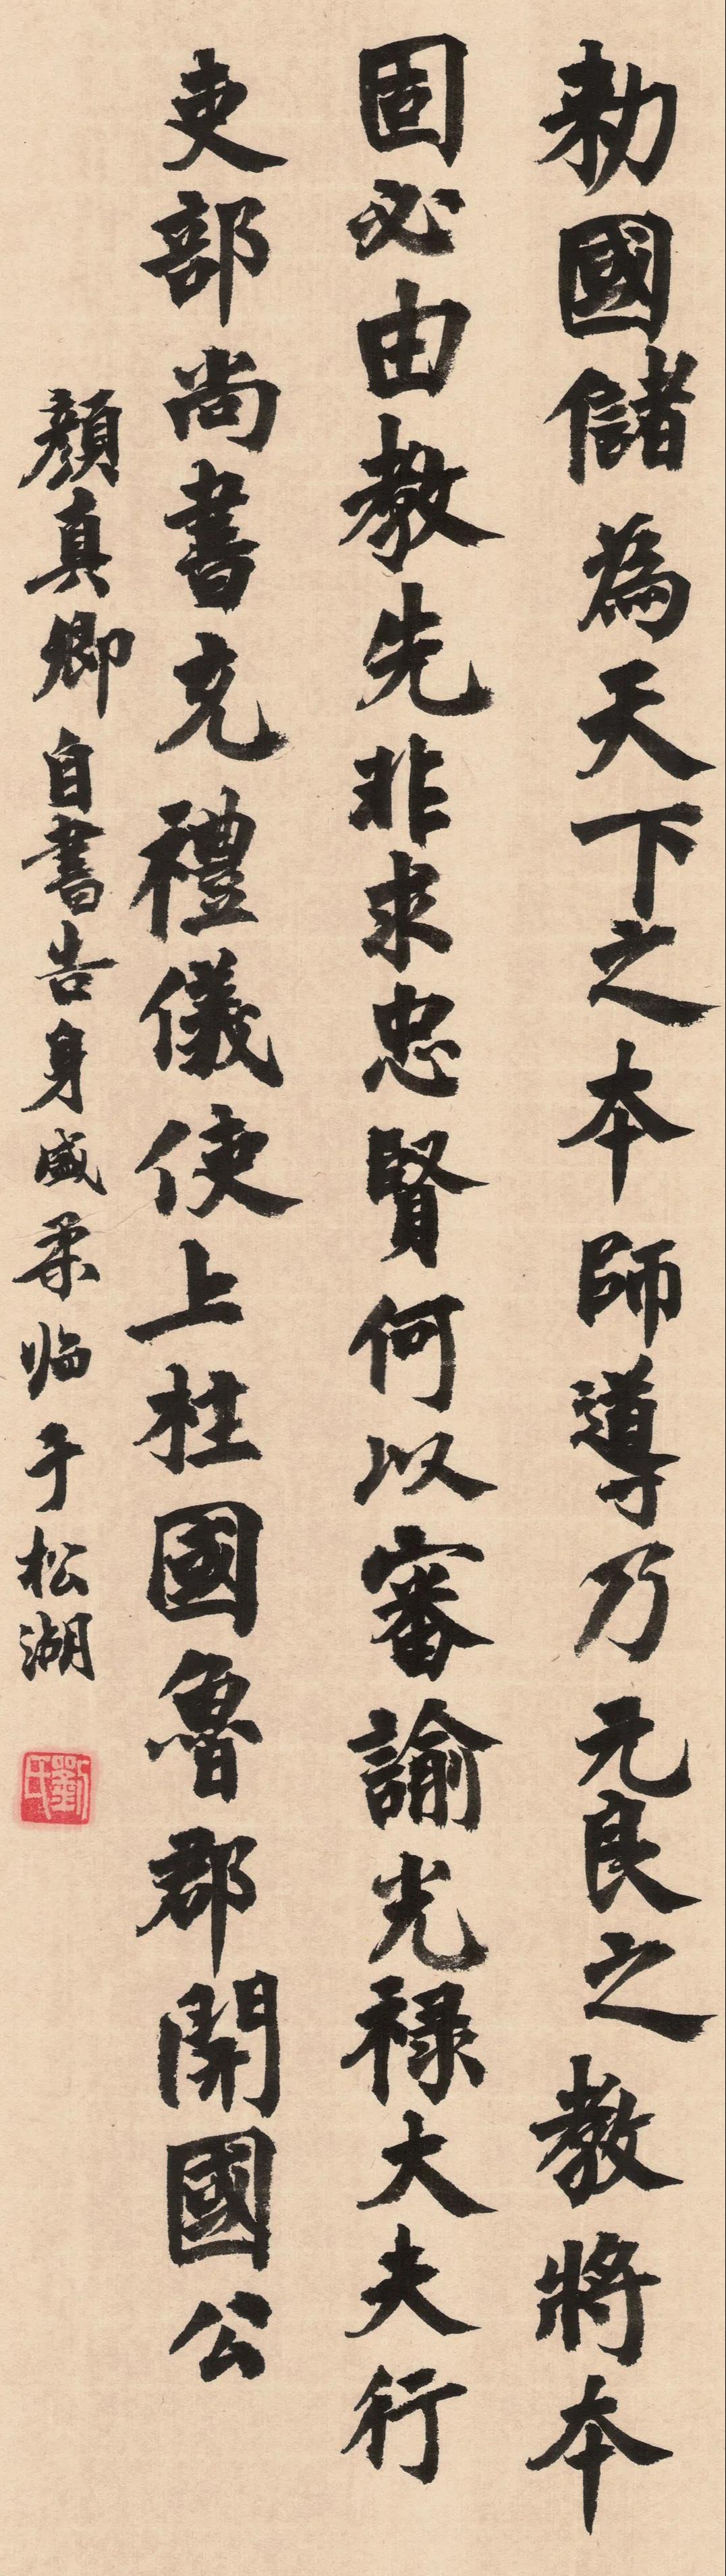 勑國儲為天下之本師導乃元良之教將本
固必由教先非求忠賢何以審諭光祿大夫行
吏部尚書充禮儀使上柱國魯郡開國公
顏真卿自書告身盛柔临于松湖
劉氏